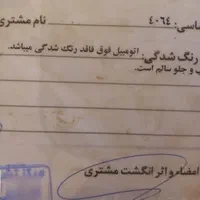 اسی: ۴۰۶۴ نام مشتری
رنگ شدگی: اتومبیل فوق فاقد رنگ شدگی میباشد.
و جلو سالم است.
امضاء و اثر انگشت مشتری